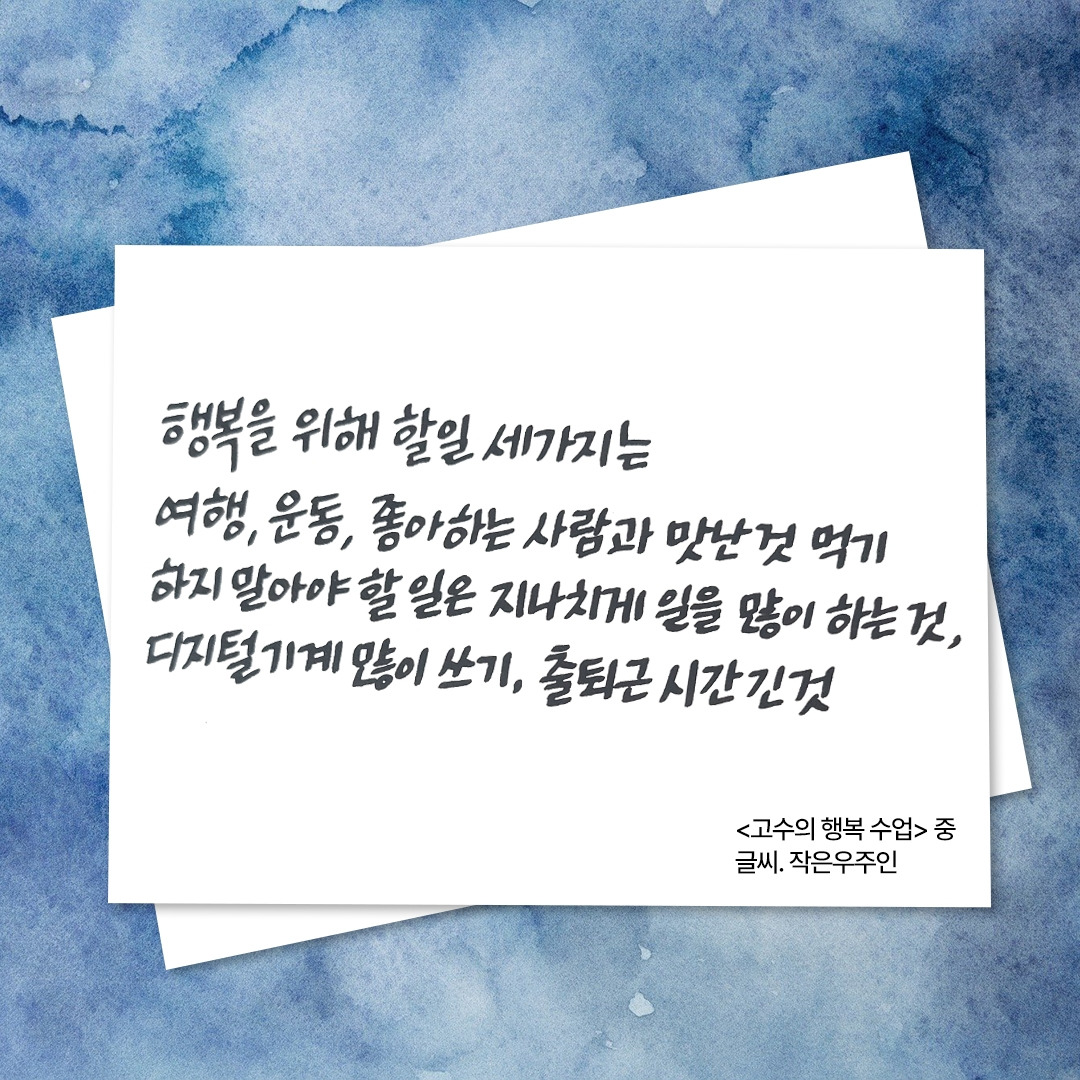 행복을 위해 할일 세가지는
여행, 운동, 좋아하는 사람과 맛난것 먹기
하지 말아야 할 일은 지나치게 일을 많이 하는 것,
디지털기계 많이 쓰기, 출퇴근 시간 긴 것
<고수의 행복 수업> 중
글씨. 작은우주인